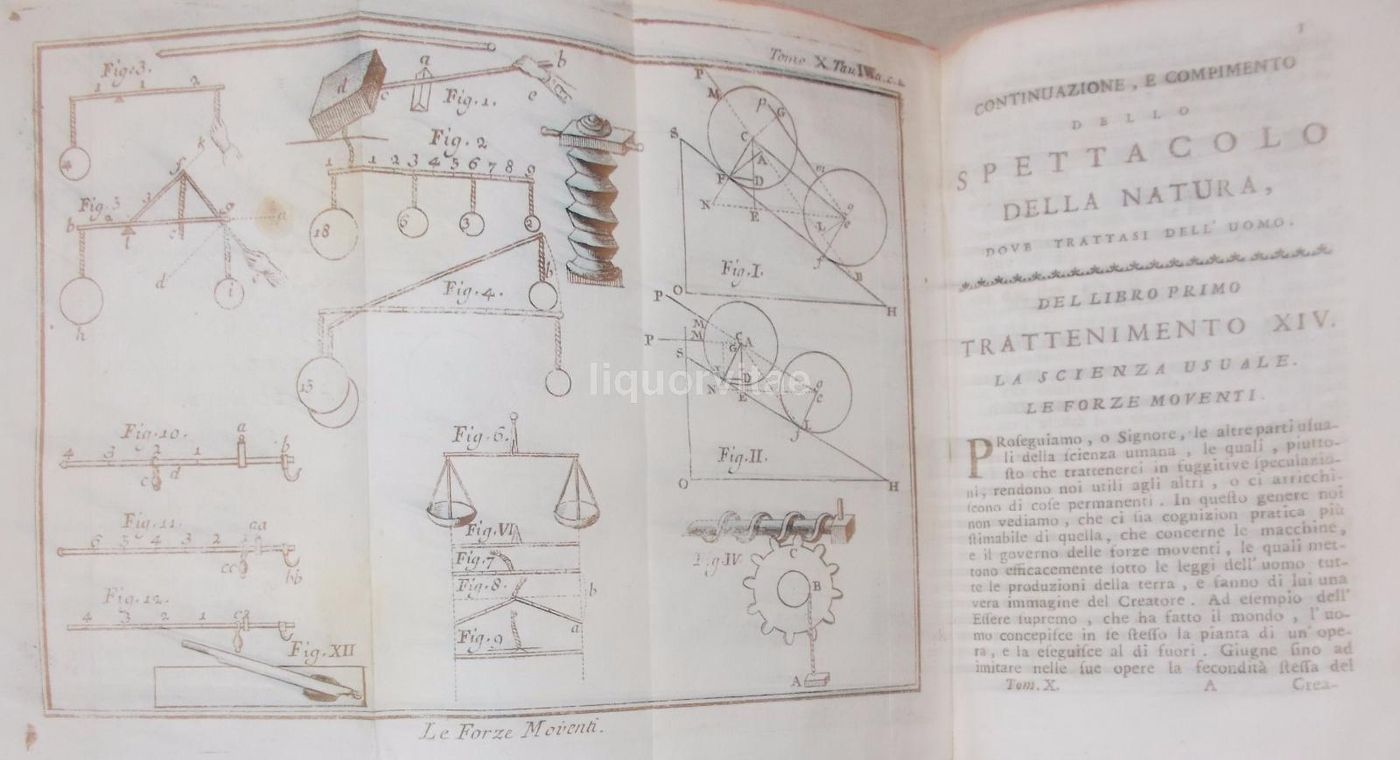 Tomo X. Tau. IV. a. c. 1.
Fig. 3.
1 1 2
4
k
f
Fig. 3
b 2 3 g a
l e c
d i
h
a b
d c e
Fig. 1.
Fig. 2
1 1 2 3 4 5 6 7 8 9
18 6 3 2
Fig. 4.
b
13
P M P G
S C m
A
F D
N E L
f B
Fig. I.
O H
P
M
P M C
G A
S
N D E
L
f
Fig. II.
O H
Fig. 10.
4 3 2 1 a b
c d f
Fig. 11.
6 5 4 3 2 aa
cc bb
Fig. 12.
4 3 2 1 c
Fig. XII
Fig. 6.
Fig. VI
Fig. 7
Fig. 8.
b
a
Fig. 9
Fig. IV
C
B
A
Le Forze Moventi.
liquorvitae
1
CONTINUAZIONE, E COMPIMENTO
DELLO
SPETTACOLO
DELLA NATURA,
DOVE TRATTASI DELL' UOMO.
DEL LIBRO PRIMO
TRATTENIMENTO XIV.
LA SCIENZA USUALE.
LE FORZE MOVENTI.
PRoseguiamo, o Signore, le altre parti usua-
li della scienza umana, le quali, piutto-
sto che trattenerci in fuggitive speculazio-
ni, rendono noi utili agli altri, o ci arricchi-
scono di cose permanenti. In questo genere noi
non vediamo, che ci sia cognizion pratica più
stimabile di quella, che concerne le macchine,
e il governo delle forze moventi, le quali met-
tono efficacemente sotto le leggi dell' uomo tut-
te le produzioni della terra, e fanno di lui una
vera immagine del Creatore. Ad esempio dell'
Essere supremo, che ha fatto il mondo, l' uo-
mo concepisce in se stesso la pianta di un' ope-
ra, e la eseguisce al di fuori. Giugne sino ad
imitare nelle sue opere la fecondità stessa del
Tom. X. A Crea-